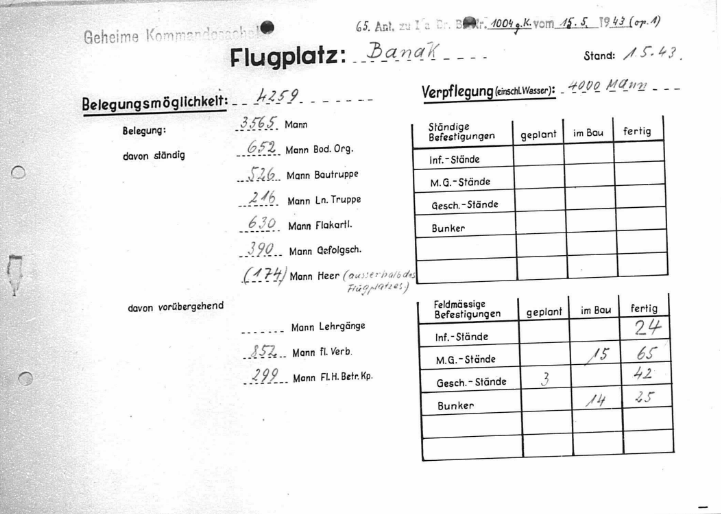 Geheime Kommandosache!
65. Anl. zu Ia Br. B. Nr. 1004 g.K. vom 15.5. 1943 (op.1)
Flugplatz: Banak
Stand: 1.5.43.
Belegungsmöglichkeit: 4259
Verpflegung (einschl. Wasser): 4000 Mann
Belegung: 3565 Mann
davon ständig 652 Mann Bod. Org.
526 Mann Bautruppe
216 Mann Ln. Truppe
630 Mann Flakartl.
390 Mann Gefolgsch.
(174) Mann Heer (ausserhalb des
Flugplatzes)
davon vorübergehend
Mann Lehrgänge
852 Mann fl. Verb.
299 Mann Fl. H. Betr. Kp.
Ständige
Befestigungen geplant im Bau fertig
Inf.-Stände
M.G.-Stände
Gesch.-Stände
Bunker
Feldmässige
Befestigungen geplant im Bau fertig
Inf.-Stände 24
M.G.-Stände 15 65
Gesch.-Stände 3 42
Bunker 14 25